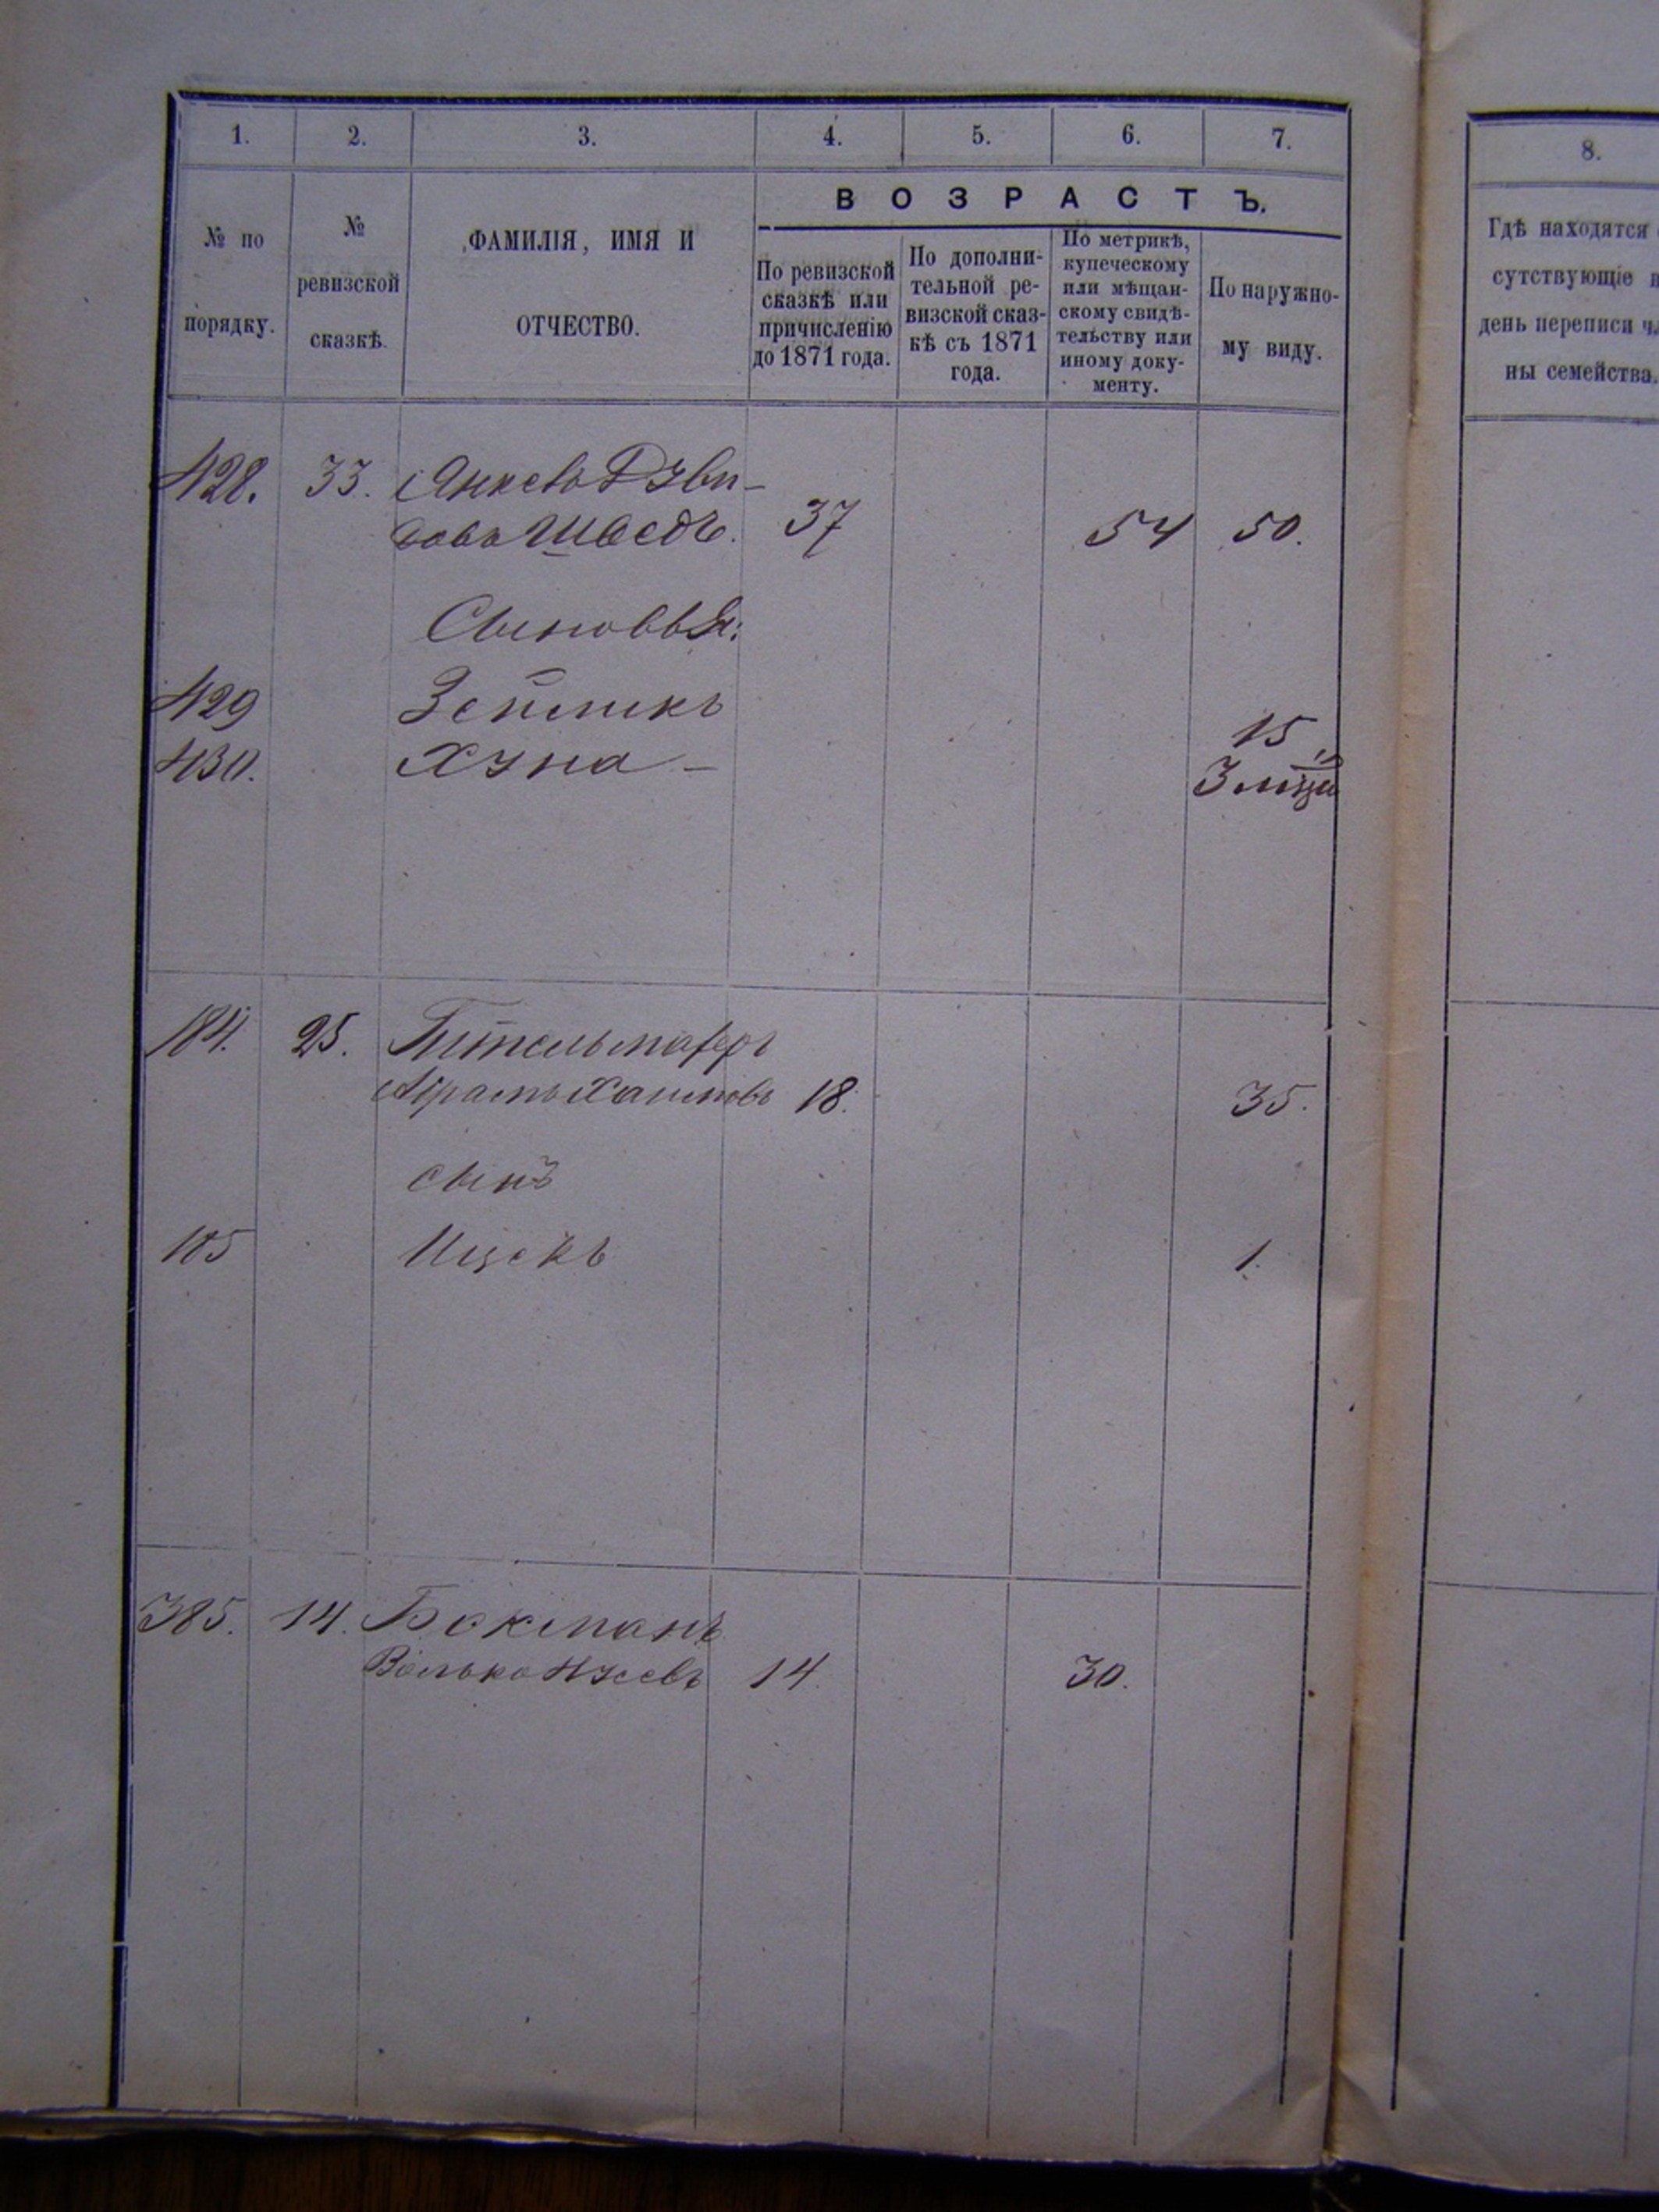 1. 2. 3. 4. 5. 6. 7.
№ по порядку.
№ ревизской сказкѣ.
ФАМИЛІЯ, ИМЯ И ОТЧЕСТВО.
ВОЗРАСТЪ.
По ревизской сказкѣ или причисленію до 1871 года.
По дополнительной ревизской сказкѣ съ 1871 года.
По метрикѣ, купеческому или мѣщанскому свидѣтельству или иному документу.
По наружному виду.
428. 33.
Шведъ. 37 54 50.
Сыновья:
429 Зейликъ 15
430. Хуна - 3
184. 25.
Абрамъ Хаимовъ 18. 35.
сынъ
185 Ицекъ 1.
385. 14. Бокманъ
Волько 14. 30.
8.
Гдѣ находятся
сутствующіе
день переписи
ны семейства.